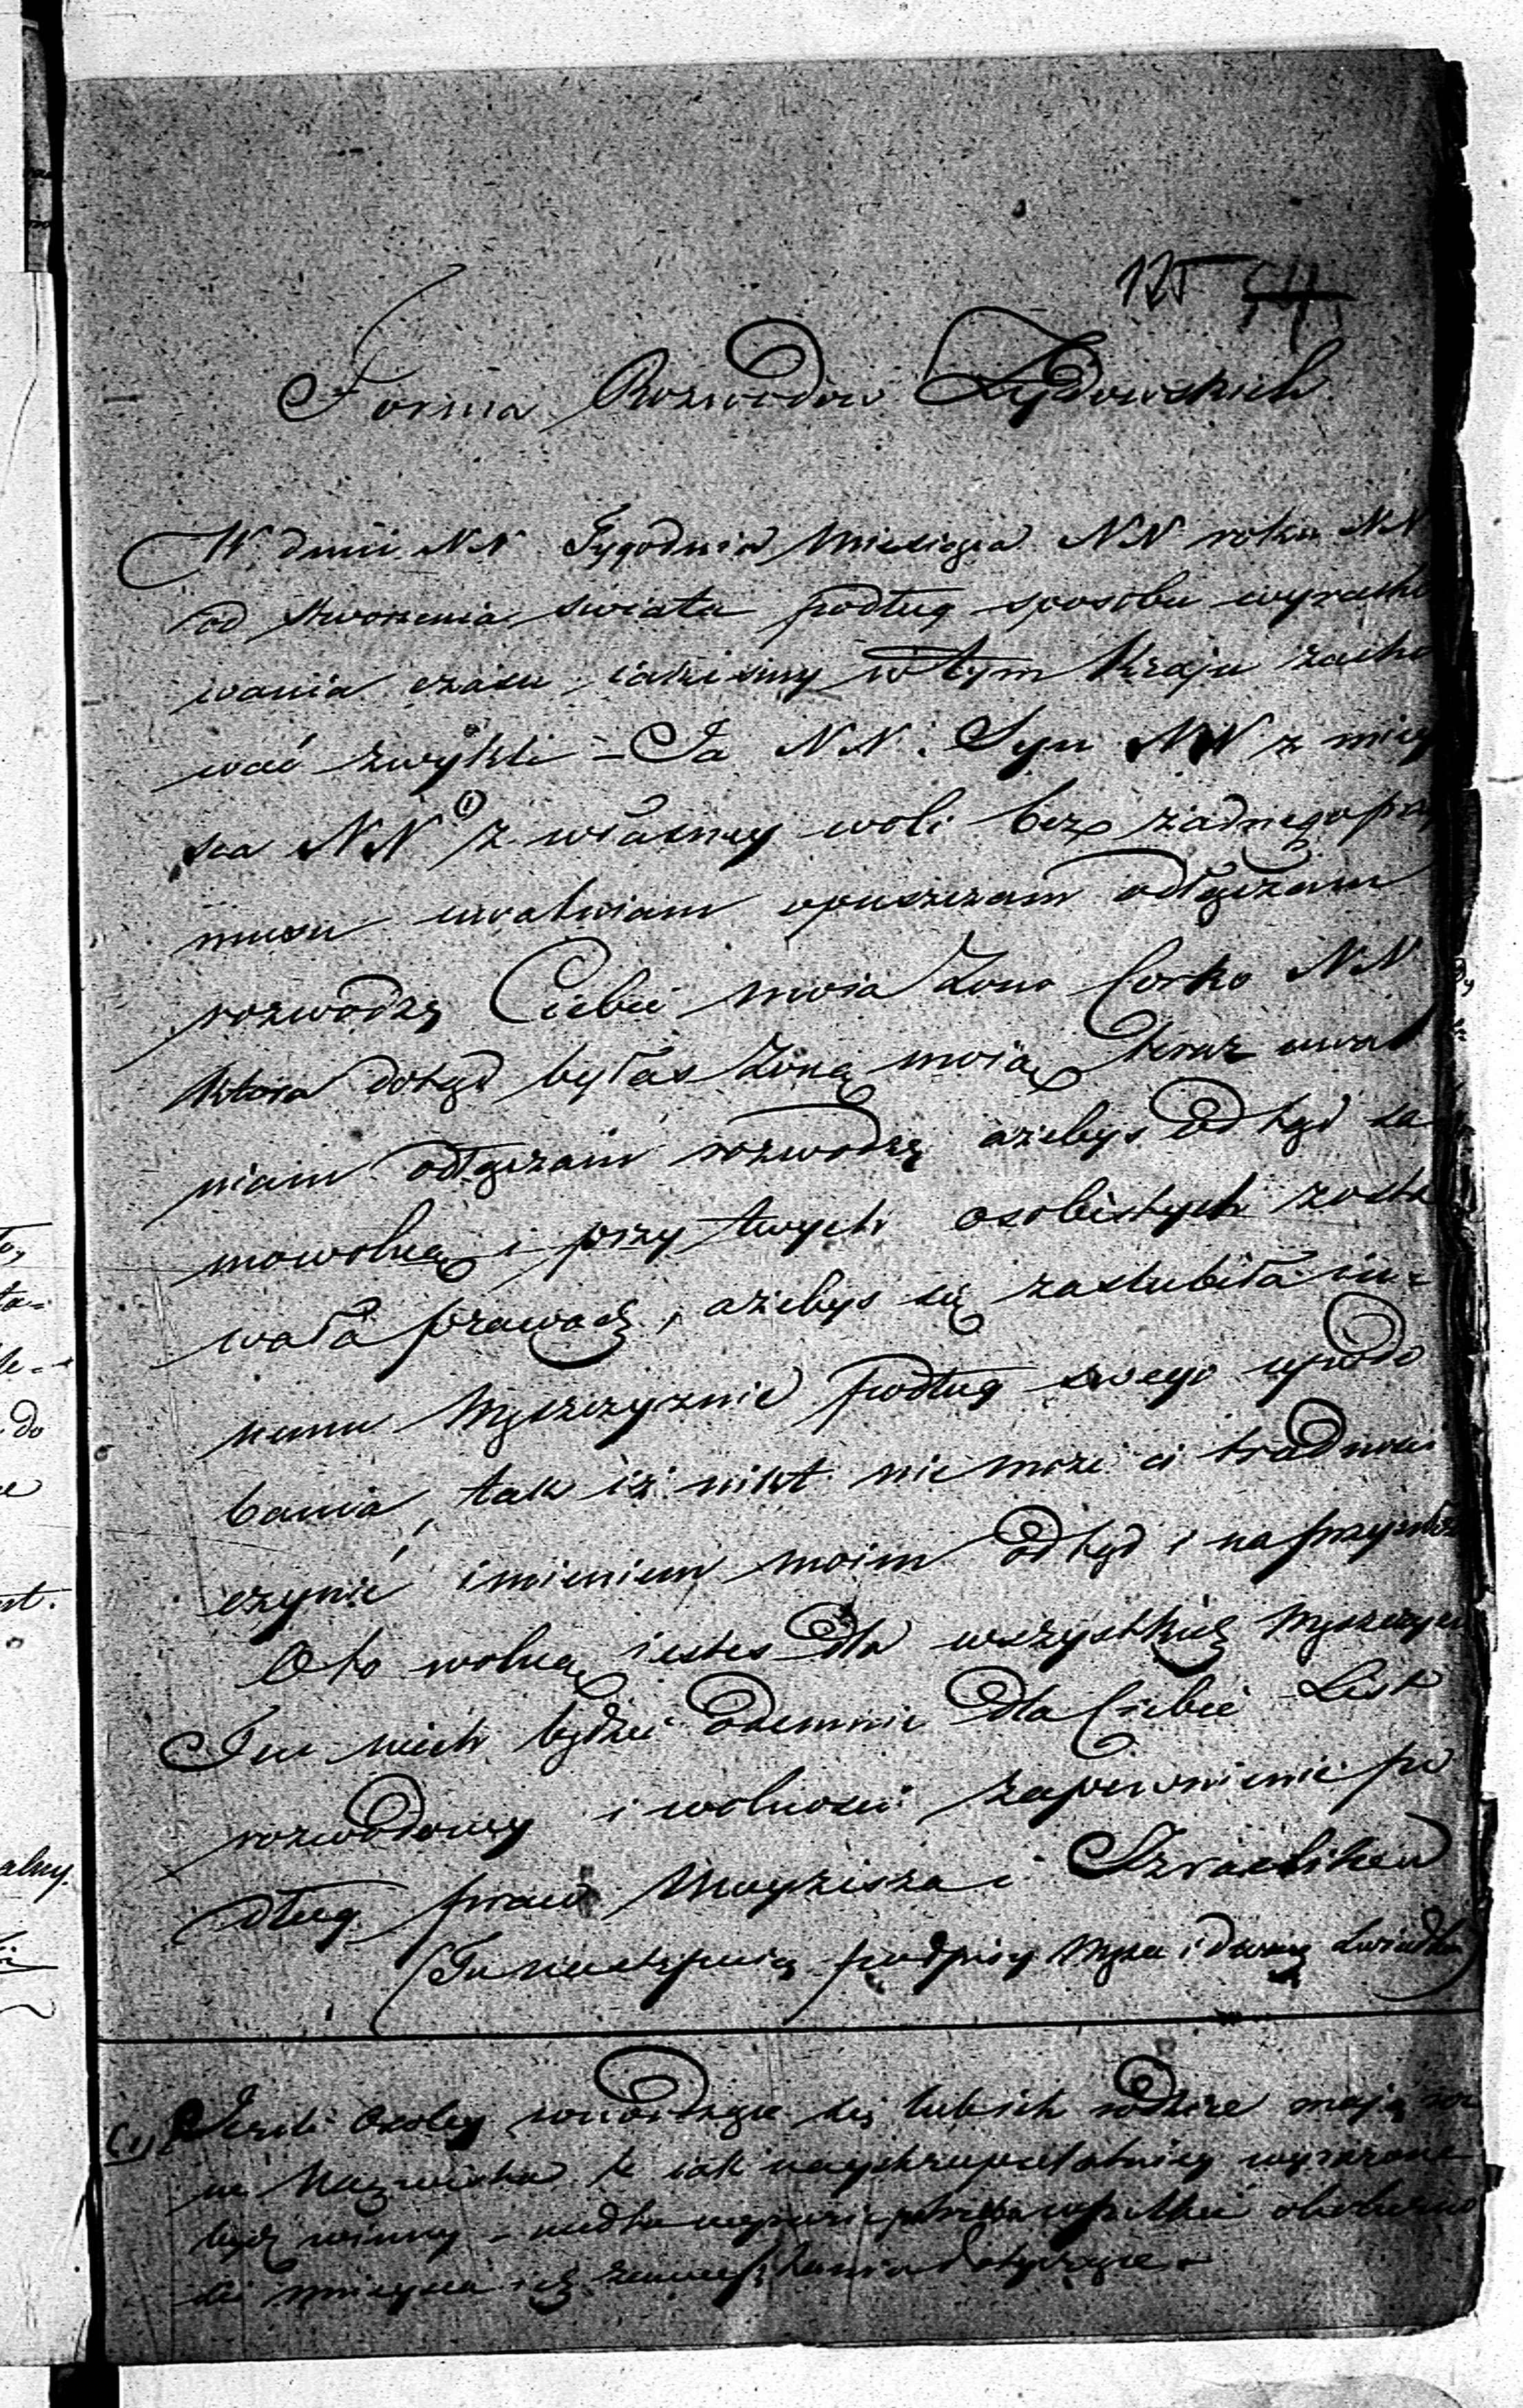 125 54
Forma Rozwodow Zydowskich
W dniu NN Tygodnia Miesiąca NN roku NN
od stworzenia swiata podług sposobu wyracho
wania czasu iakiesmy w tym Kraju zacho
wać zwykli – Ja NN. Syn NN z miey
sca NN (1) z własney woli bez żadnego przy
musu uwalniam opuszczam odłączam
rozwodzę Ciebie moia Zono Corko NN
ktora dotąd byłas Zoną moią teraz uwal
niam odłączam rozwodzę ażebys odtąd sa
mowolną i przy twych osobistych zosta
wała prawach, ażebys się zaslubiła in=
nemu Męzczyznie podług swego upodo
bania, tak iż nikt nie może ci trudnosci
czynić imieniem moim odtąd i na przyszłosc
Oto wolną iestes dla wszystkich Męzczyzn
Ten niech będzie odemnie dla Ciebie List
rozwodowy i wolnosci zapewnienie po
dług praw Moyzesza i Izraelitow
(Tu następuią podpisy Męza i dwóch Swiadkow)
(1) Jezeli Osoby rozwodzące się lub ich rodzice mają
Nazwiska te iak nayskrupulatniey wyrażone
być winny
mieysca ich zamieszkania dotyczące